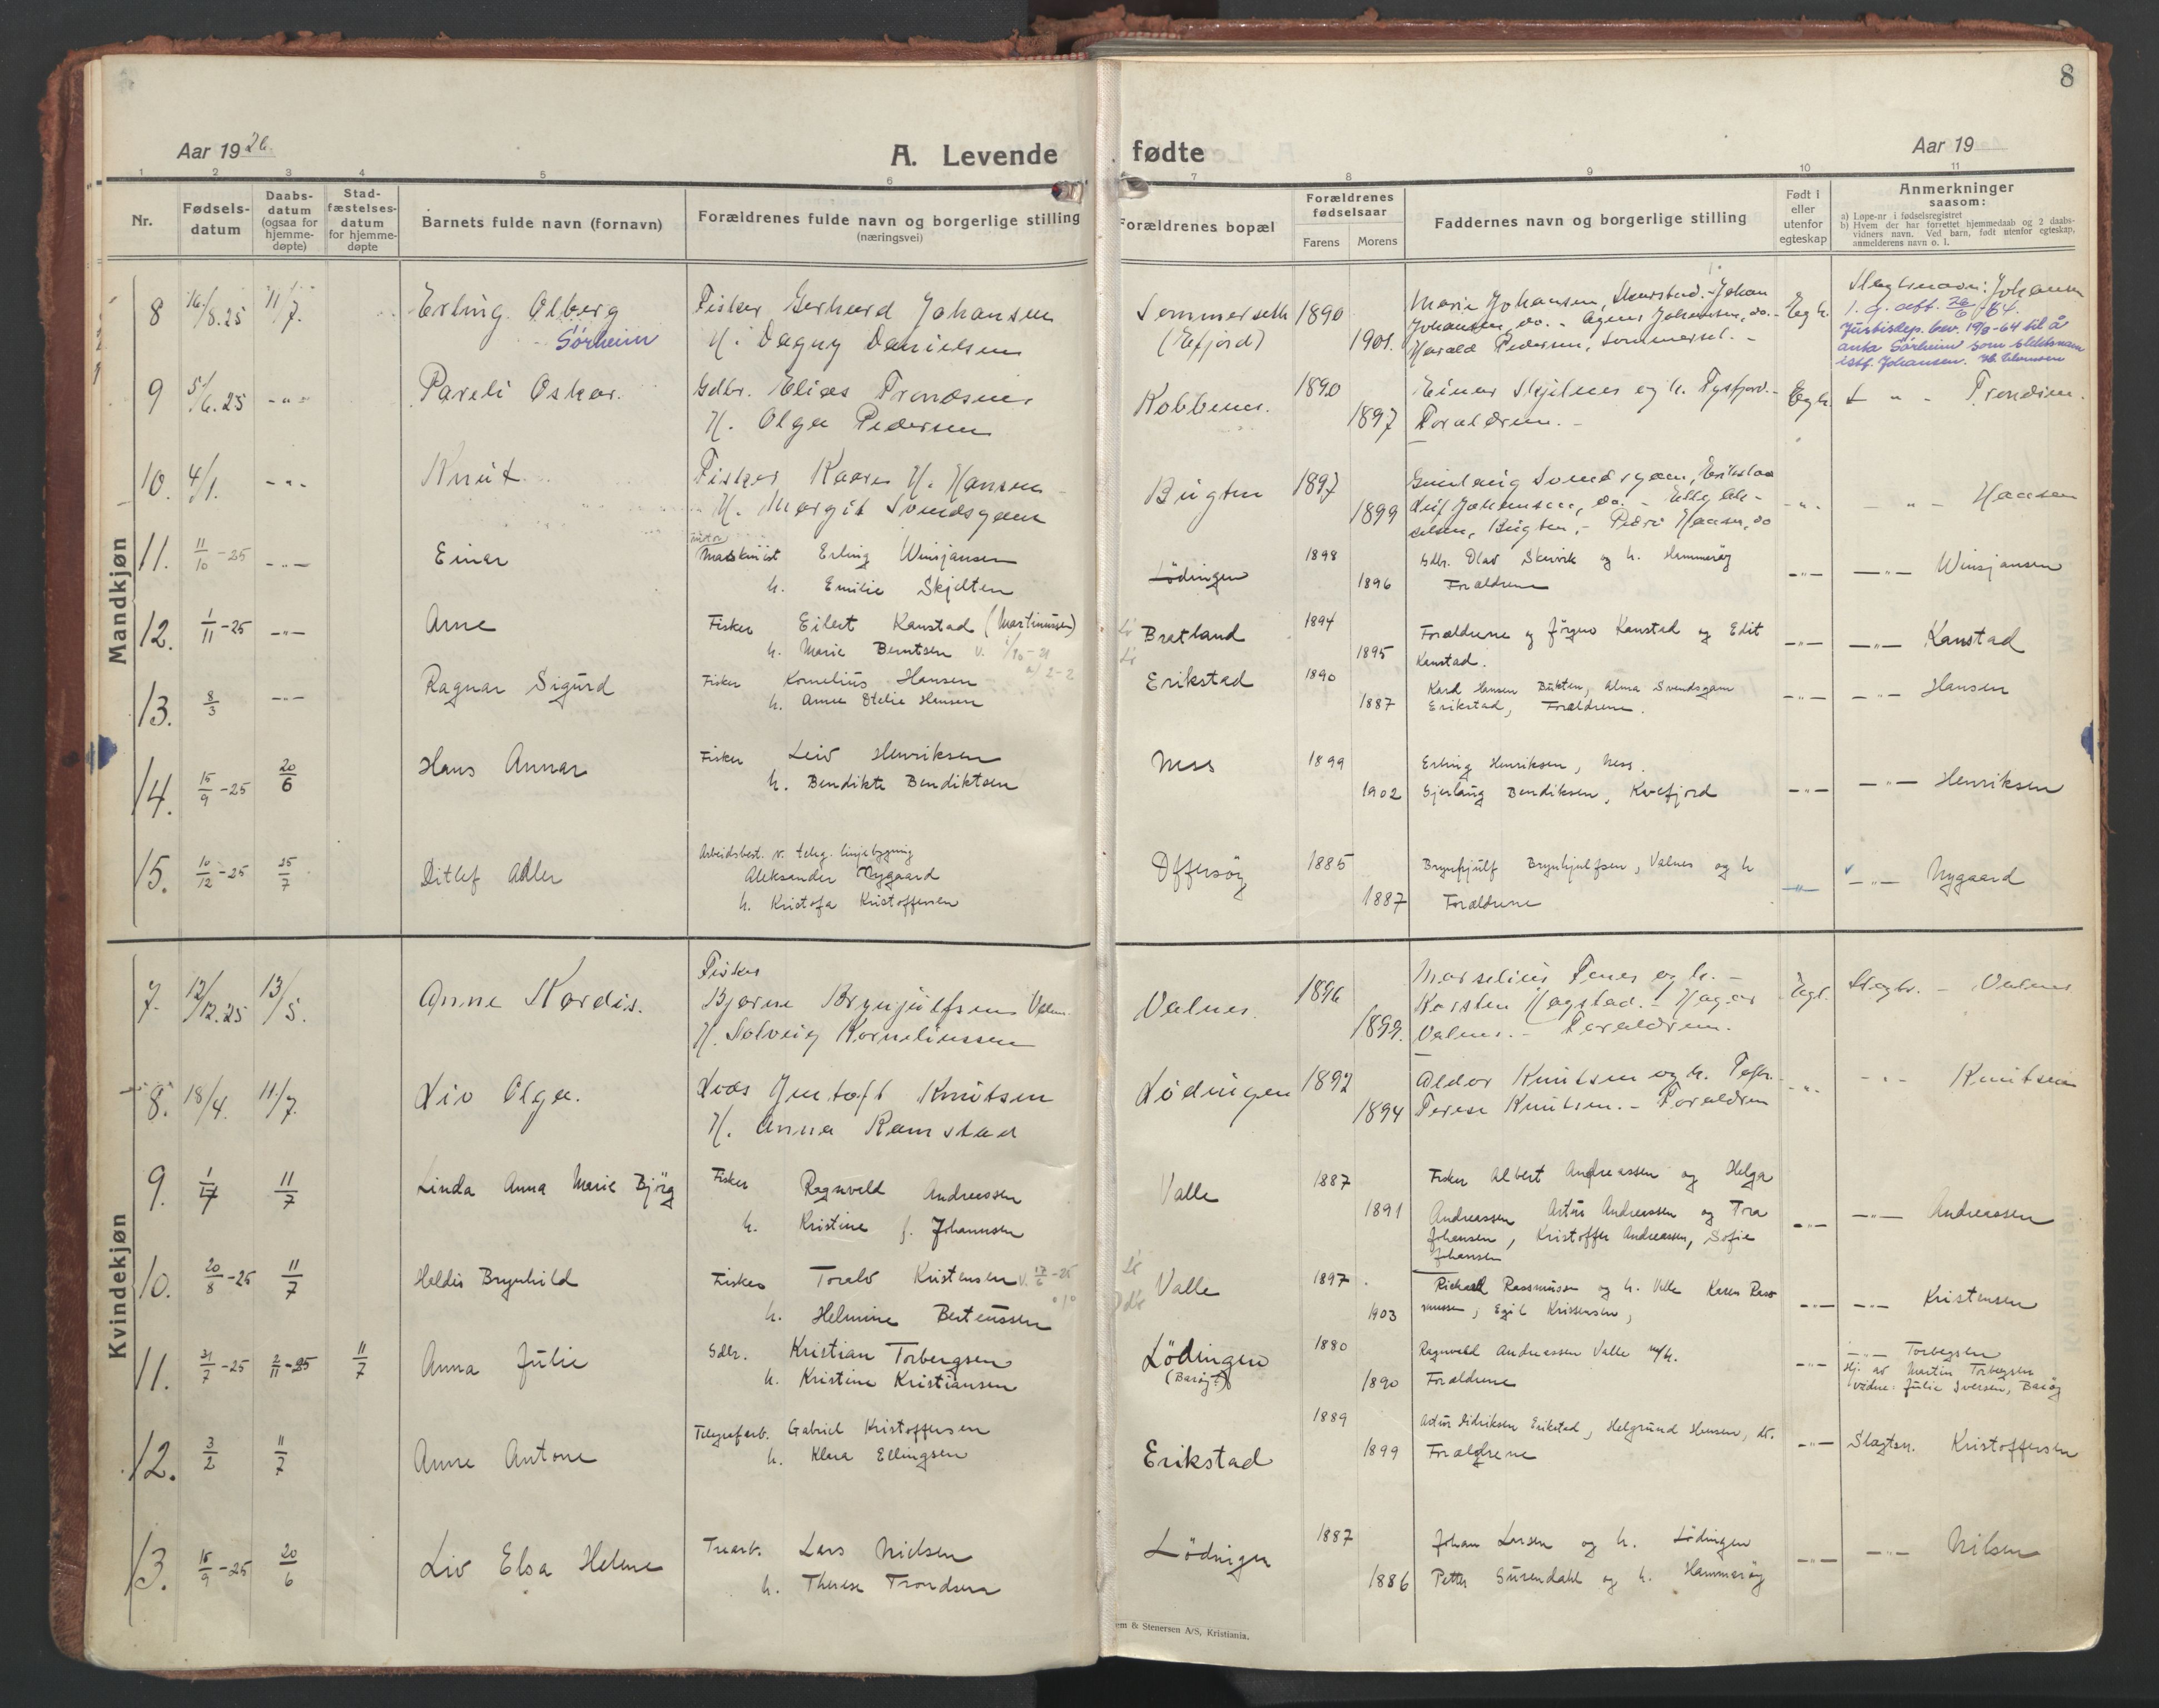 8
Aar 1926.
A. Levende fødte
Aar 19
1 2 3 4 5 6 7 8 9 10 11
Nr.
Fødsels-
datum
Daabs-
datum
(ogsaa for
hjemme-
døpte)
Stad-
fæstelses-
datum
for hjemme-
døpte
Barnets fulde navn (fornavn)
Forældrenes fulde navn og borgerlige stilling
(næringsvei)
Forældrenes bopæl
Forældrenes
fødselsaar
Farens Morens
Faddernes navn og borgerlige stilling
Født i
eller
utenfor
egteskap
Anmerkninger
saasom:
a) Løpe-nr i fødselsregistret
b) Hvem der har forrettet hjemmedaab og 2 daabs-
vidners navn. Ved barn, født utenfor egteskap,
anmelderens navn o. l.
Mandkjøn
8 16/8.25 11/7. Erling Olberg
Sørheim
Fisker Gerhard Johansen
H. Dagny Danielsen
Sommerseth
(Efjord)
1890
1901.
Marie Johansen, Johan
Johansen, do. - Agnes Johansen, do. -
Harald Pedersen, Sommerset. -
Egh.
Slegtsnavn: Johansen
Justisdep. bev. 19/8-64 til å
anta Sørheim som slektsnavn
istf. Johansen.
9 5/6.25 -"- Pareli Oskar.
Gdbr. Elias Trondsen
H. Olga Pedersen
Kobbenes.
1890
1897
Einar Skjelnes og h. Tysfjord. -
Forældrene. -
Egh.
" - Trondsen.
10. 4/1. -"- Knut
Fisker Kaare H. Hansen
H. Margit Svendsgam
Bugten
1897
1899
Gunlaug Svendsgam, Erikstad
Leif Johansen, do. -
Bugten, - Peder Hansen, do
-"- - " - Hansen
11. 11/10-25 -"- Einar
motor
Maskinist Erling Winsjansen
h. Emilie Skjelten
Lödingen
1898
1896
Gdbr. Olav Skervik og h. Hammerøy
Forældrene
-"- -"- Winsjansen
12. 1/11-25 -"- Arne
Fisker Eilert Kanstad (Martinussen)
h. Marie Berntsen
Bratland
1894
1895
Forældrene og Jörgen Kanstad og Edit
Kanstad.
-"- -"- Kanstad
13. 8/3 -"- Ragnar Sigurd
Fisker Kornelius Hansen
h. Anne Otelie Hansen
Erikstad
1890
1887
Kard Hansen Bukten, Alma Svendsgam
Erikstad, Forældrene.
-"- -"- Hansen
14. 15/9-25 20/6 Hans Annar
Fisker Leiv Henriksen
h. Bendikte Bendiktsen
Ness
1899
1902
Erling Henriksen, Ness.
Gjerlaug Bendiksen, Kvefjord
-"- -"- Henriksen
15. 10/12-25 25/7 Ditlef Adler
Arbeidsbest. v. teleg. linjebygning
Aleksander Nygaard
h. Kristofa Kristoffersen
Offersöy
1885
1887
Brynhjulf Brynhjulfsen, Valnes og h
Forældrene
-"- -"- Nygaard
Kvindekjøn
7. 12/12.25 13/5. Anne Nordis.
Fisker
Bjarne Brynjulfsen
H. Solveig Korneliussen
Valnes.
1896
1899.
Marselius Penes og h. -
Karsten Hagstad. - Hagar
Valnes. - Forældrene.
Egt. Slegtn. - Valnes
8. 18/4. 11/7. Liv Olga.
Los Jentoft Knutsen
H. Anna Ramstad
Lödingen
1892
1894
Aldor Knutsen og h.
Terese Knutsen. - Forældrene
-"- -"- Knutsen
9. 1/7 11/7 Linda Anna Marie Björg
Fisker Ragnvald Andreassen
h. Kristine f. Johannsen
Valle
1887
1891
Fisker Albert Andreassen og Helga
Andreassen Artur Andreassen og Tra
Johansen, Kristoffer Andreassen, Sofie
Johansen
-"- -"- Andreassen
10. 20/8-25 11/7 Heldis Brynhild
Fisker Toralv Kristensen v. 17/6-25
h. Helmine Berteussen
Valle
1897
1903
Rickard Rassmussen og h. Valle Karen Rass
mussen, Egil Kristensen,
-"- -"- Kristensen
11. 31/7-25 2/11-25 11/7 Anna Julie
Gdbr. Kristian Torbergsen
h. Kristine Kristiansen
Lödingen
(Baröy)
1880
1890
Ragnvald Andreassen Valle m/h.
Forældrene
-"- -"- Torbergsen
Hj. av Martin Torbergsen
vidne: Julie Iversen, Baröy
12. 3/2 11/7 Anne Antone
Telegrafarb. Gabriel Kristoffersen
h. Klara Ellingsen
Erikstad
1889
1899
Astur Didriksen Erikstad, Helgrund Hansen, do.
Forældrene
-"- Slegtsn. Kristoffersen
13. 15/9-25 20/6 Liv Elsa Helene
Trearb. Lars Nielsen
h. Therese Trondsen
Lödingen
1887
1886
Johan Larsen og h. Lödingen
Petter Surendahl og h. Hammeröy
-"- -"- Nilsen
em & Stenersen A/S, Kristiania.